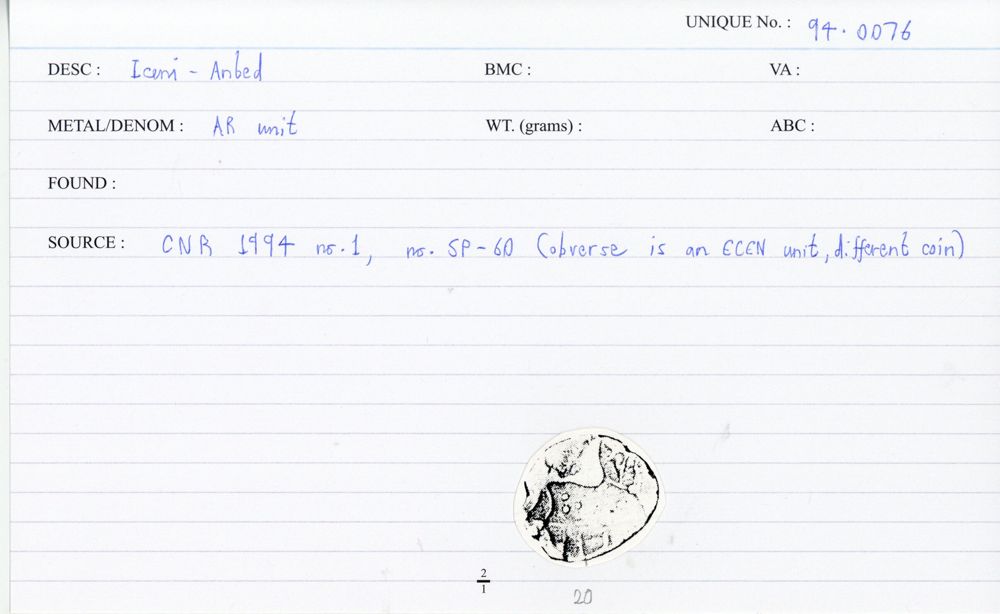 UNIQUE No. : 94.0076
DESC : Iceni - Anbed BMC : VA :
METAL/DENOM : AR unit WT. (grams) : ABC :
FOUND :
SOURCE : CNR 1994 no.1, no. SP-60 (obverse is an ECEN unit, different coin)
2
1
20